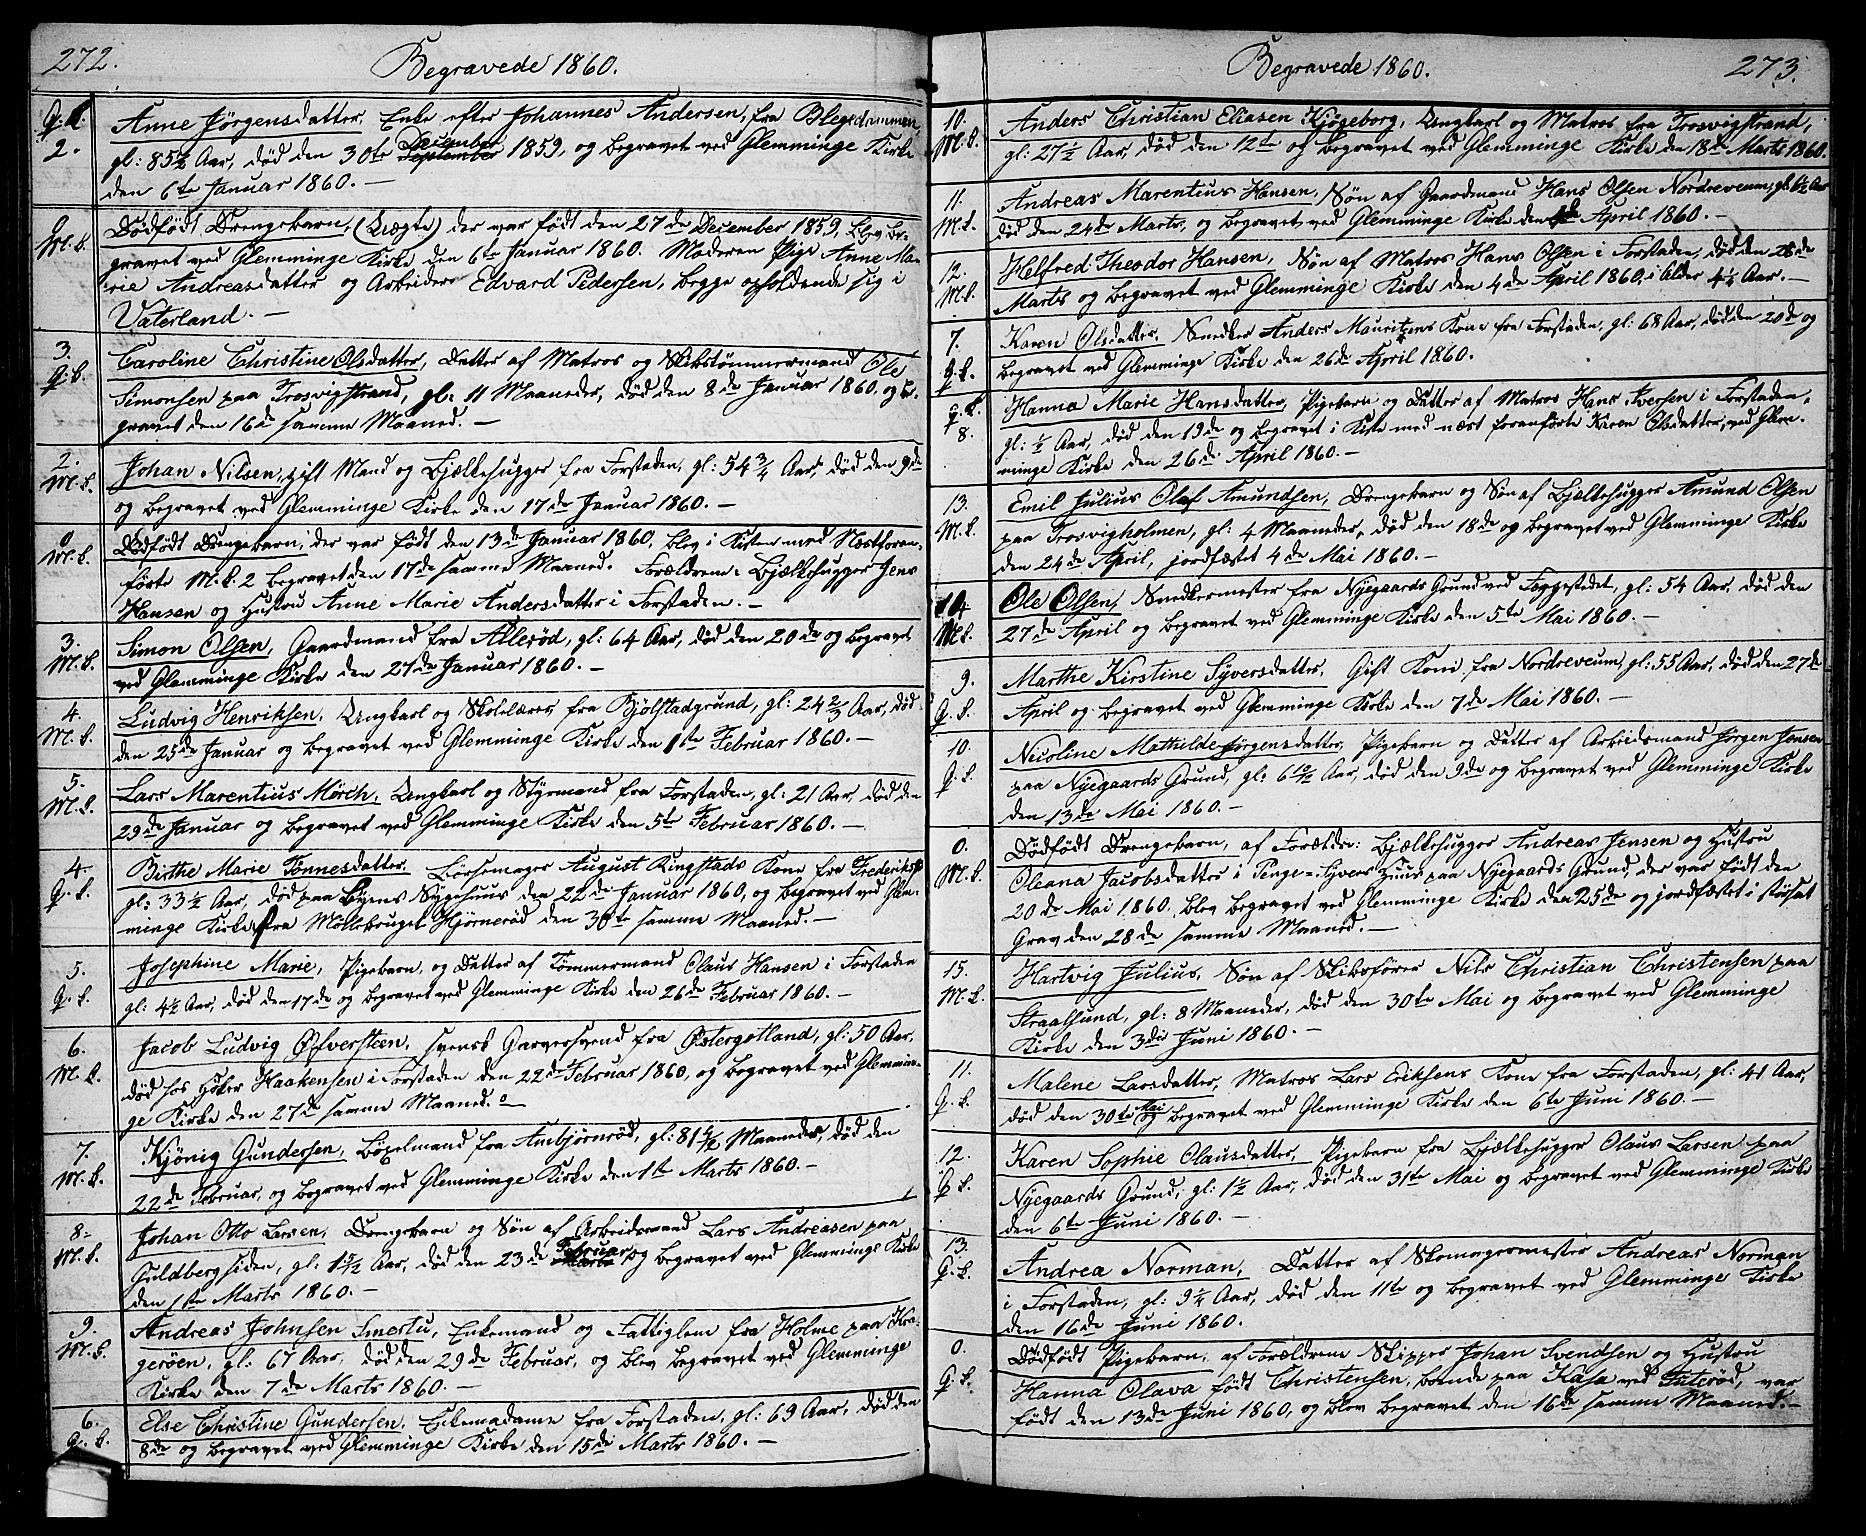 272.
Begravede 1860.
Q. K.
2.
Anne Jörgensdatter, Enke efter Johannes Andersen, fra Blegedammen,
gl: 85½ Aar, död den 30te December September 1859, og begravet ved Glemminge Kirke
den 6te Januar 1860. —
0
M. K.
Dödfödt Drengebarn, (Uægte) der var födt den 27de December 1859, blev be-
gravet ved Glemminge Kirke den 6te Januar 1860. Moderen Pige Anne Ma-
rie Andreasdatter og Arbeider Edvard Pedersen, begge opholdende sig i
Vaterland. —
3.
Q. K.
Caroline Christine Olsdatter, Datter af Matros og Skibstømmermand Ole
Simonsen paa Trosvigstrand, gl: 11 Maaneder, död den 8de Januar 1860, og be-
gravet den 16de samme Maaned. —
2.
M. K.
Johan Nilsen, gift Mand og Bjælkehugger fra Forstaden, gl: 54¾ Aar, död den 9de
og begravet ved Glemminge Kirke den 17de Januar 1860. —
0
M. K.
Dödfödt Drengebarn, der var födt den 13de Januar 1860, blev i Kisten med Næstforan-
förte M. K. 2 begravet den 17de samme Maaned. Forældrene: Bjælkehugger Jens
Hansen og Hustru Anne Marie Andersdatter i Forstaden. —
3.
M. K.
Simon Olsen, Gaardmand fra Allerød, gl: 64 Aar, död den 20de og begravet
ved Glemminge Kirke den 27de Januar 1860. —
4.
M. K.
Ludvig Henriksen, Ungkarl og Skolelærer fra Bjölstadgrund, gl: 24⅔ Aar, död
den 25de Januar og begravet ved Glemminge Kirke den 1ste Februar 1860. —
5.
M. K.
Lars Marentius Mörch, Ungkarl og Styrmand fra Forstaden, gl: 21 Aar, död den
29de Januar og begravet ved Glemminge Kirke den 5te Februar 1860. —
4.
Q. K.
Birthe Marie Tönnesdatter, Börsemager August Ringstads Kone fra Frederiksst
gl: 33½ Aar, död paa Byens Sygehuus den 22de Januar 1860, og begravet ved Glem-
minge Kirke fra Möllebruget Hjörneröd den 30te samme Maaned. —
5.
Q. K.
Josephine Marie, Pigebarn, og Datter af Tömmermand Olaus Hansen i Forstaden
gl: 4½ Aar, död den 17de og begravet ved Glemminge Kirke den 26de Februar 1860. —
6.
M. K.
Jacob Ludvig Øfversteen, svensk Garversvend fra Östergotland, gl: 50 Aar,
död hos Höker Haakensen i Forstaden den 22de Februar 1860, og begravet ved Glemmin-
ge Kirke den 27de samme Maaned. —
7.
M. K.
Kjönig Gundersen, Böxelmand fra Ambjörnröd, gl: 81 Maaneder, död den
22de Februar, og begravet ved Glemminge Kirke den 1ste Marts 1860. —
8.
M. K.
Johan Otto Larsen, Drengebarn og Sön af Arbeidsmand Lars Andreasen paa
Guldbergsiden, gl: 1 Aar, död den 23de Februar Marts og begravet ved Glemminge Kirke
den 1ste Marts 1860. —
9.
M. K.
Andreas Johnsen Smertu, Enkemand og Fattiglem fra Holme paa Kra-
geröen, gl: 67 Aar, död den 29de Februar, og blev begravet ved Glemminge
Kirke den 7de Marts 1860. —
6.
Q. K.
Else Christine Gundersen, Enkemadame fra Forstaden, gl: 69 Aar, död den
8de og begravet ved Glemminge Kirke den 15de Marts 1860. —
273.
Begravede 1860.
10.
M. K.
Anders Christian Eliasen Kjögeborg, Ungkarl og Matros fra Trosvigstrand,
gl: 27½ Aar, död den 12te og begravet ved Glemminge Kirke den 18de Marts 1860.
11.
M. K.
Andreas Marentius Hansen, Sön af Gaardmand Hans Olsen Nordreveum, gl: 6½ Aar
död den 24de Marts, og begravet ved Glemminge Kirke den April 1860. —
12.
M. K.
Helfred Theodor Hansen, Sön af Matros Hans Olsen i Forstaden, död den 28de
Marts og begravet ved Glemminge Kirke den 4de April 1860, i Alder 4¼ Aar. —
7.
Q. K.
Karen Olsdatter, Snedker Anders Mauritzens Kone fra Forstaden, gl: 68 Aar, död den 20de og
begravet ved Glemminge Kirke den 26de April 1860.
Q. K.
8.
Hanna Marie Hansdatter, Pigebarn og Datter af Matros Hans Iversen i Forstaden,
gl: ½ Aar, död den 19de og begravet i Kiste med næst foranförte Karen Olsdatter, ved Glem-
minge Kirke den 26de April 1860. —
13.
M. K.
Emil Julius Olaf Amundsen, Drengebarn og Sön af Bjælkehugger Amund Olsen
paa Trosvigholmen, gl: 4 Maaneder, död den 18de og begravet ved Glemminge Kirke
den 24de April, jordfæstet 4de Mai 1860. —
14
M. K.
Ole Olsen, Snedkermester fra Nyegaards Grund ved Færgestedet, gl: 54 Aar, död den
27de April og begravet ved Glemminge Kirke den 5te Mai 1860. —
9.
Q. K.
Marthe Kirstine Syversdatter, Gift Kone fra Nordreveum, gl: 55 Aar, död den 27de
April og begravet ved Glemminge Kirke den 7de Mai 1860. —
10.
Q. K.
Nicoline Mathilde Jörgensdatter, Pigebarn og Datter af Arbeidsmand Jörgen Jensen
paa Nyegaards Grund, gl: 6 Aar, död den 9de og begravet ved Glemminge Kirke
den 13de Mai 1860. —
0.
M. K.
Dödfödt Drengebarn, af Forældre: Bjælkehugger Andreas Jensen og Hustru
Oleana Jacobsdatter i Penge-Syvers Huus paa Nyegaards Grund, der var födt den
20de Mai 1860, blev begravet ved Glemminge Kirke den 25de og jordfæstet i
Grav den 28de samme Maaned. —
15.
M. K.
Hartvig Julius, Sön af Skibsförer Nils Christian Christensen paa
Straalsund, gl: 8 Maaneder, död den 30te Mai og begravet ved Glemminge
Kirke den 3die Juni 1860. —
11.
Q. K.
Malene Larsdatter, Matros Lars Eriksens Kone fra Forstaden, gl: 41 Aar,
död den 30te Mai og begravet ved Glemminge Kirke den 6te Juni 1860. —
12.
Q. K.
Karen Sophie Olausdatter, Pigebarn fra Bjælkehugger Olaus Larsen paa
Nyegaards Grund, gl: 1½ Aar, död den 31te Mai og begravet ved Glemminge Kirke
den 6te Juni 1860. —
13.
Q. K.
Andrea Norman, Datter af Skomagermester Andreas Norman
i Forstaden, gl: 9¼ Aar, död den 11te og begravet ved Glemminge Kirke
den 16de Juni 1860.
0.
Q. K.
Dödfödt Pigebarn, af Forældrene Skipper Johan Svendsen og Hustru
Hanna Olava födt Christensen, boende paa Kasa ved Guteröd, var
födt den 13de Juni 1860, og blev begravet den 16de samme Maaned. —